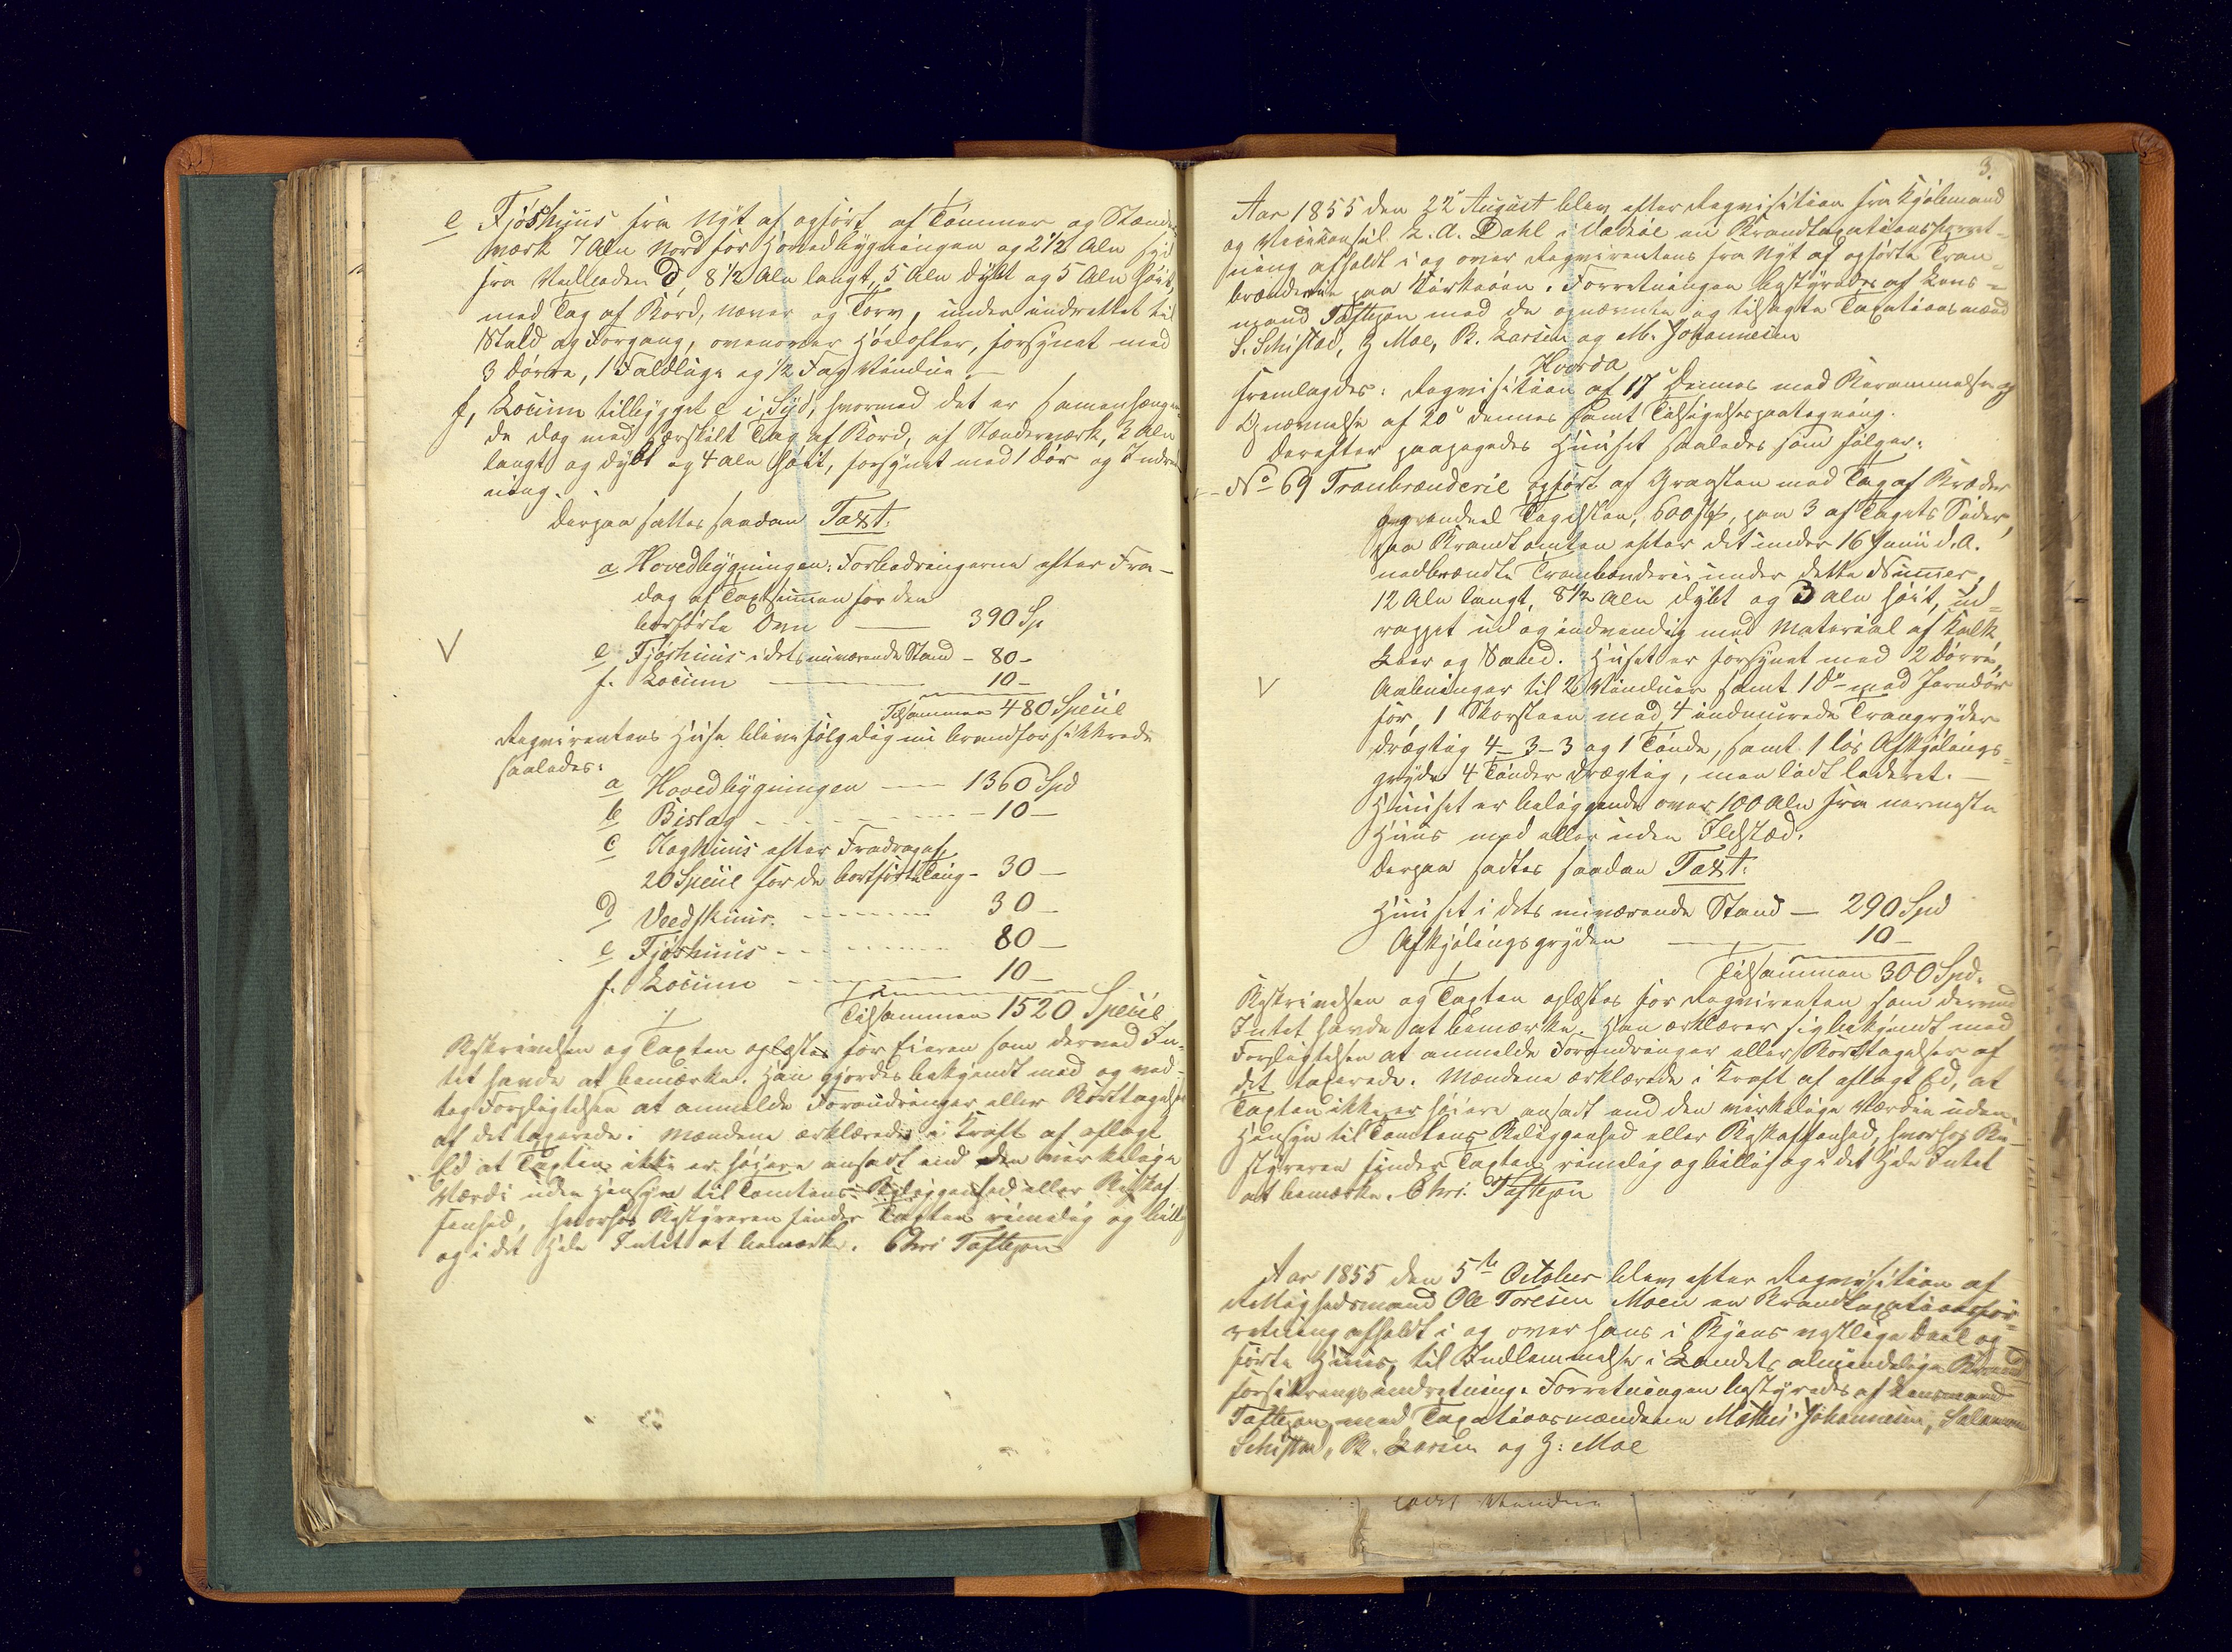 e Fjøshuus fra Nyt af opført af Tømmer og Stænder-
værk 7 Alen Nord for Hovedbygningen og 2 1/2 Alen Syd
fra Vedboden d, 8 1/2 Alen langt, 5 Alen dybt og 5 Alen høit,
med Tag af Bord, Næver og Torv, under indrettet til
Stald og Forgang, ovenover Høelofter, forsynet med
3 Dørre, 1 Faldluge og 1/2 Fag Vindue. —
f, Locum tilbygget e i Syd, hvormed det er sammenhængen-
de dog med særskilt Tag af Bord, af Stænderværk, 3 Alen
langt og dybt og 4 Alen høit, forsynet med 1 Dør og Indret-
ning.
Derpaa sattes saadan Taxt:
a Hovedbygningen: Forbedringerne efter Fra-
drag af Taxtsummen for den
bortførte Ovn — 390 Sp
e Fjøshuus i dets nuværende Stand - 80 -
f. Locum — 10 -
Tilsammen 480 Specie
Reqvirentens Huse bliver følgelig nu brandforsikkrede
saaledes:
a Hovedbygningen — 1360 Spd
b Bislag - 10 —
c Koghuus efter Fradrag af
20 Specie for de bortførte Ting - 30 —
d Veedskuur - 30 —
e Fjøshuus - 80 —
f. Locum - 10 —
Tilsammen 1520 Specie
Beskrivelsen og Taxten oplæstes for Eieren som derved In-
tet havde at bemærke. Han gjordes bekjendt med og ved-
tog Forpligtelsen at anmelde Forandringer eller Borttagelse
af det taxerede. Mændene erklærede i Kraft af aflagt
Ed at Taxten ikke er høiere ansadt end den virkelige
Værdi uden Hensyn til Tomtens Beliggenhed eller Beskaf-
fenhed, hvorhos Bestyreren finder Taxten rimelig og billig
og i det Hele Intet at bemærke. Chr: Taftezon
3.
Aar 1855 den 22 August blev efter Reqvisition fra Kjøbmand
og Viceconsul L. A. Dahl i Vadsøe en Brandtaxationsforret-
ning afholdt i og over Reqvirentens fra Nyt af opførte Tran-
brænderie paa. Forretningen bestyredes af Lens-
mand Taftezon med de opnævnte og tilsagte Taxationsmænd
S. Schistad, Z Moe, B. Larsen og M. Johannesen
Hvorda
fremlagdes: Reqvisition af 17 Dennes med Berammelse og
Opnævnelse af 20 dennes samt Tilsigelsespaategning.
Derefter paapegedes Huuset saaledes som følger:
No 69 Tranbrænderie opført af Graasten med Tag af Bræder
og endeel Tagsten, 600 Stk, paa 3 af Tagets Sider,
paa Brandtomten efter det under 16 Junii d. A.
nedbrændte Tranbrænderie under dette Nummer,
12 Alen langt, 8 1/2 Alen dybt og 3 Alen høit, ud-
rappet ud og indvendig med Material af Kalk
Leer og Sand. Huset er forsynet med 2 Dørre,
Aabninger til 2 Vinduer samt 1 Do med Jerndør
for, 1 Skorsteen med 4 indmurede Trangryder
drægtig 4 - 3 - 3 og 1 Tønde, samt 1 løs Afkjølings-
gryde 4 Tønder drægtig, men lidt laderet. —
Huuset er beliggende over 100 Alen fra nærmeste
Huus med eller uden Ildsted.
Derpaa sadtes saadan Taxt:
Huuset i dets nuværende Stand — 290 Spd
Afkjølingsgryden — 10 —
Tilsammen 300 Spd.
Beskrivelsen og Taxten oplæstes for Reqvirenten som derved
Intet havde at bemærke. Han erklærer sig bekjendt med
Forpligtelsen at anmelde Forandringer eller Borttagelser af
det taxerede. Mændene erklærede i Kraft af aflagt Ed, at
Taxten ikke er høiere ansadt end den virkelige Værdie uden
Hensyn til Tomtens Beliggenhed eller Beskaffenhed, hvorhos Be-
styreren finder Taxten rimelig og billig og i det Hele Intet
at bemærke. Chr: Taftezon
Aar 1855 den 5te October blev efter Reqvisition af
Rettighedsmand Ole Toresen Moen en Brandtaxationsfor-
retning afholdt i og over hans i Byens vestlige Deel op-
førte Huus, til Indlemmelse i Landets almindelige Brand-
forsikringsindretning. Forretningen bestyredes af Lensmand
Taftezon med Taxationsmændene Mathis Johannesen, Salamon
Schistad, B. Larsen og Z: Moe